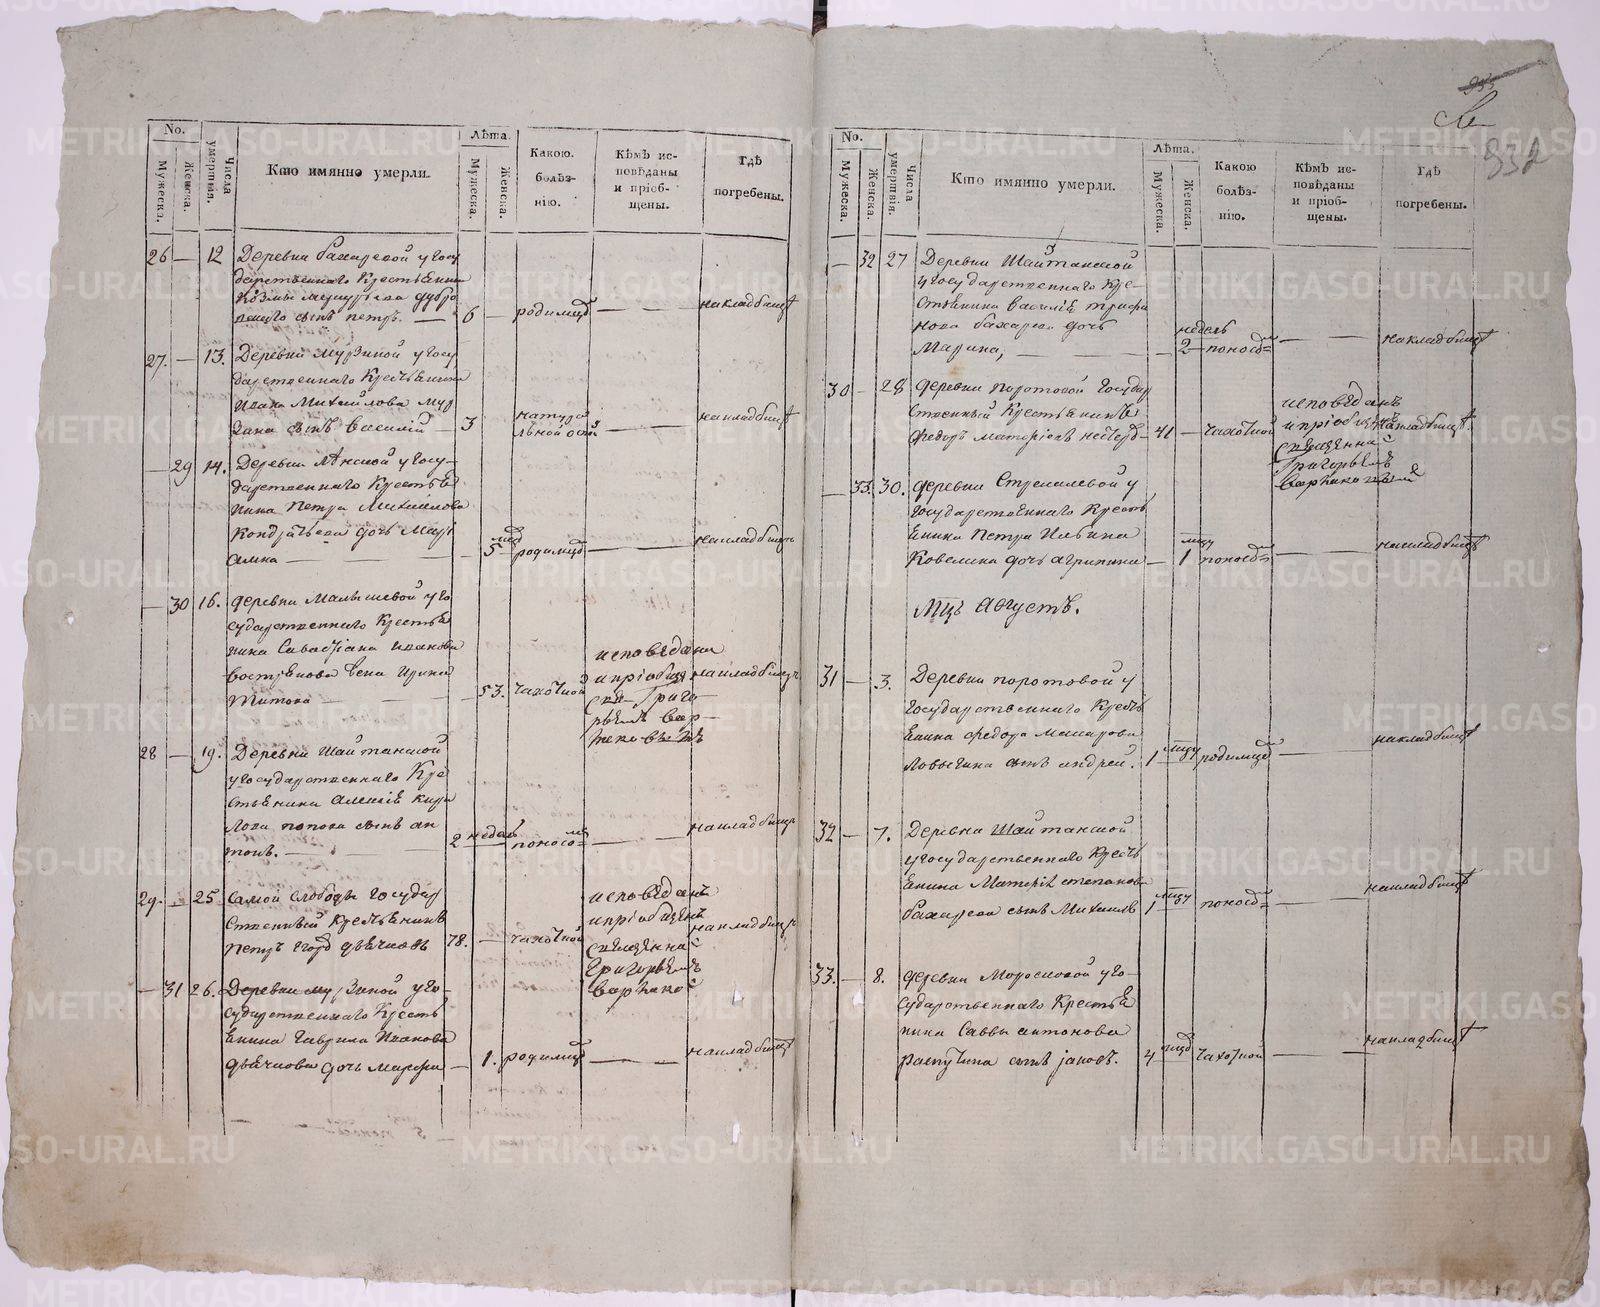 No.
Мужеска.
Женска.
Числа умертвія.
Кто имянно умерли.
Лѣта.
Мужеска.
Женска.
Какою.
болѣз-
нію.
Кѣмъ ис-
повѣданы
и пріоб-
щены.
Гдѣ
погребены.
26 — 12 Деревни бахаревой у госу
дарственнаго Крестьянина
Козмы
сынъ петръ. — 6 — родимцѣ — — на кладбищѣ
27. — 13. Деревни мурзиной у госу
дарственнаго Крестьянина
Ивана Михайлова мур
зина сынъ василій — 3 натура
льной оспой на кладбищѣ
— 29 14. Деревни у госу-
дарственнаго Крестья
нина Петра Михайлова
Кондратьева дочь Марі
амна — — 5 мцъ родимцѣ — — на кладбищѣ
— 30 16. деревни Малышевой у го
сударственнаго Крестья
нина Савастіана иванова
вострякова жена Ирина
Титова — — 53. чахотной
исповѣдана
и пріобщена на кладбищѣ
свя- Григо-
рьемъ вар-
28 — 19. Деревни Шайтанской
у государственнаго Кре
стьянина алексія кири
лова попова сынъ ан
тонъ. — 2 недель поносомъ — — на кладбищѣ
29. — 25 самой слободы государ
ственный крестьянинъ
петръ дьячковъ 78. — чахотной
исповѣданъ
и пріобщенъ на кладбищѣ
священной
Григорьемъ
— 31 26. Деревни мурзиной у го-
сударственнаго Кресть
янина гаврила Иванова
дьячкова дочь марфа — 1. родимцѣ — — на кладбищѣ
332
No.
Мужеска.
Женска.
Числа умертвія.
Кто имянно умерли.
Лѣта.
Мужеска.
Женска.
Какою
болѣз-
нію.
Кѣмъ ис-
повѣданы
и пріоб-
щены.
Гдѣ
погребены.
— 32 27 Деревни Шайтанской
у государственнаго Кре-
стьянина василія трифа
нова бахарева дочь
Марина, — — недель 2 поносомъ — — на кладбищѣ
30 — 28 деревни поротовой государ
ственный Крестьянинъ
федоръ 41 — чахотной
исповѣданъ
и пріобщенъ на кладбищѣ
священной
Григорьемъ
— 33. 30. деревни Стрекалевой у
государственнаго Кресть
янина Петра Ильина
Ковелина дочь агрипина — мцу 1 поносомъ — — на кладбищѣ
Мцъ августъ.
31 — 3. Деревни поротовой у
государственнаго Кресть
янина федора макарова
ловыгина сынъ андрей. 1 мцу родимцѣ — на кладбищѣ
32 — 7. Деревни Шайтанской
у государственнаго Кресть
янина Матфія степанова
бахарева сынъ Михаилъ 1 мцу поносомъ — — на кладбищѣ
33. — 8. деревни Моросковой у го-
сударственнаго Крестья
нина Саввы антонова
распутина сынъ іаковъ. 4 мцъ чахотной — — на кладбищѣ
METRIKI.GASO-URAL.RU